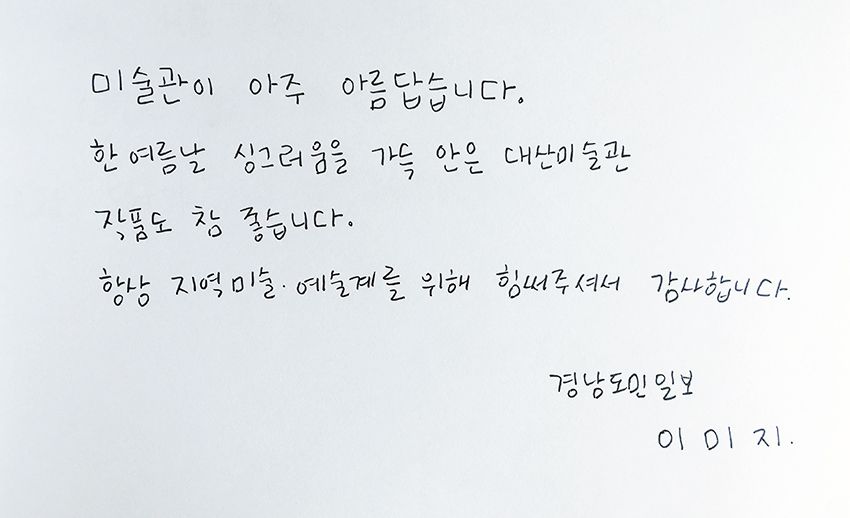 미술관이 아주 아름답습니다.
한 여름날 싱그러움을 가득 안은 대산미술관
작품도 참 좋습니다.
항상 지역미술·예술계를 위해 힘써주셔서 감사합니다.
경남도민일보
이 미 지.